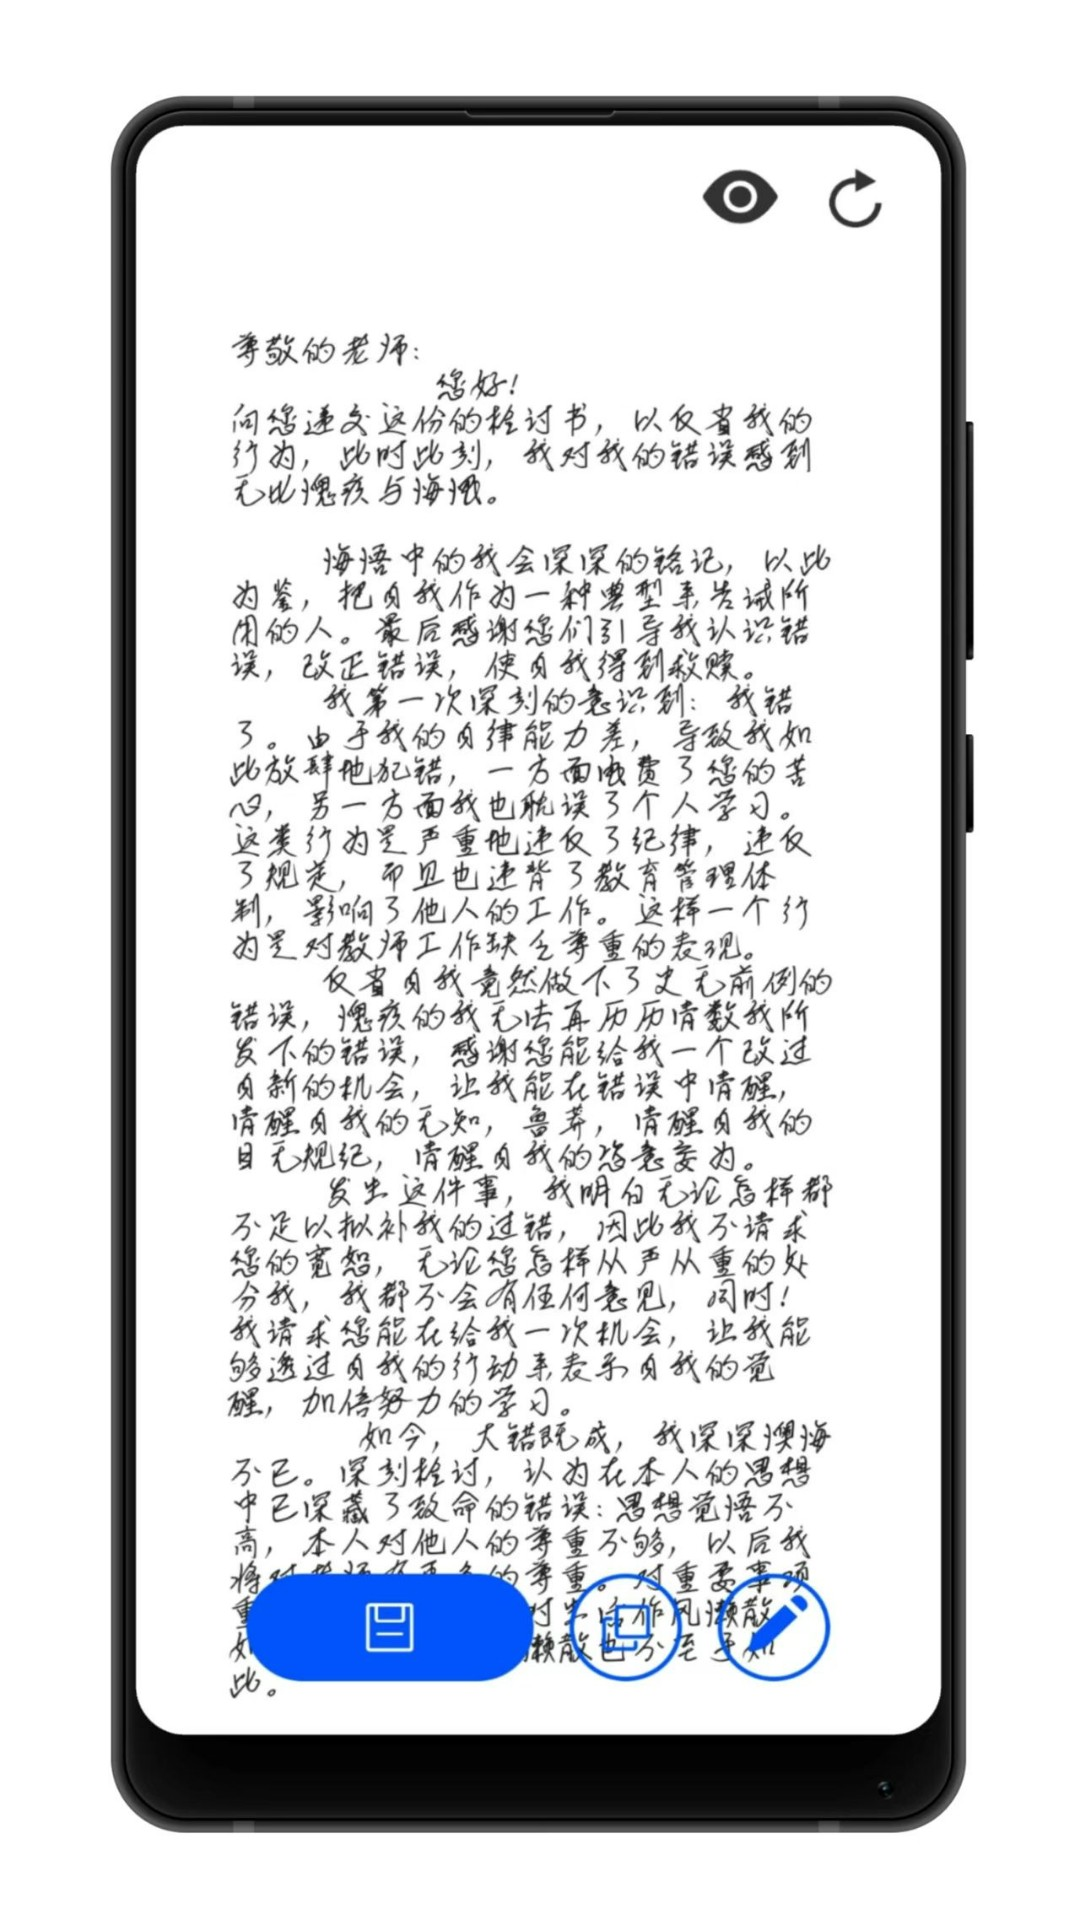 尊敬的老师：
您好！
向您递交这份的检讨书，以反省我的
行为，此时此刻，我对我的错误感到
无比愧疚与悔恨。
悔悟中的我会深深的铭记，以此
为鉴，把自我作为一种典型来告诫所
用的人。最后感谢您们引导我认识错
误，改正错误，使自我得到救赎。
我第一次深刻的意识到：我错
了。由于我的自律能力差，导致我如
此放肆地犯错，一方面浪费了您的苦
心，另一方面我也耽误了个人学习。
这类行为是严重地违反了纪律，违反
了规定，而且也违背了教育管理体
制，影响了他人的工作。这样一个行
为是对教师工作缺乏尊重的表现。
反省自我竟然做下了史无前例的
错误，愧疚的我无法再历历清数我所
发下的错误，感谢您能给我一个改过
自新的机会，让我能在错误中清醒，
清醒自我的无知，鲁莽，清醒自我的
目无规纪，清醒自我的恣意妄为。
发生这件事，我明白无论怎样都
不足以拟补我的过错，因此我不请求
您的宽恕，无论您怎样从严从重的处
分我，我都不会有任何意见，同时！
我请求您能在给我一次机会，让我能
够透过自我的行动来表示自我的觉
醒，加倍努力的学习。
如今，大错既成，我深深懊悔
不已。深刻检讨，认为在本人的思想
中已深藏了致命的错误：思想觉悟不
高，本人对他人的尊重不够，以后我
将对老师有更多的尊重。对重要事项
重 对生活作风懒散
如 懒散也不至于如
此。